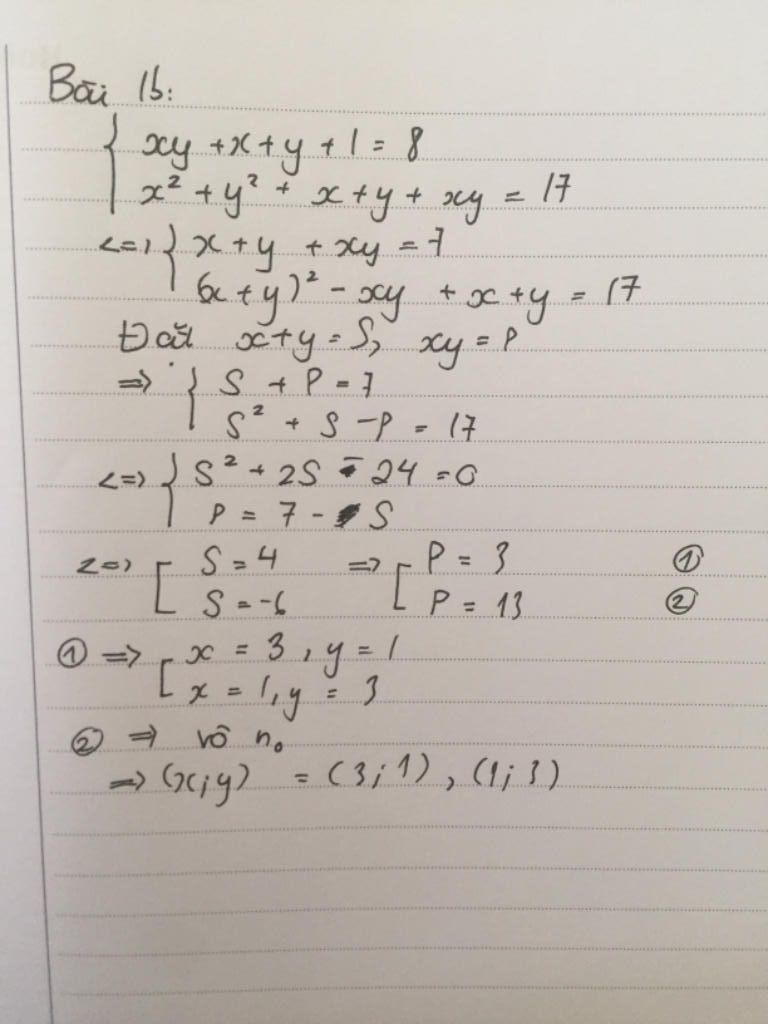 Bài 1b:
{ xy + x + y + 1 = 8
x² + y² + x + y + xy = 17
<=> { x + y + xy = 7
(x + y)² - xy + x + y = 17
Đặt x + y = S, xy = P
=> { S + P = 7
S² + S - P = 17
<=> { S² + 2S - 24 = 0
P = 7 - S
<=> [ S = 4 => [ P = 3 ①
S = -6 P = 13 ②
① => [ x = 3, y = 1
x = 1, y = 3
② => vô n₀
=> (x;y) = (3;1), (1;3)